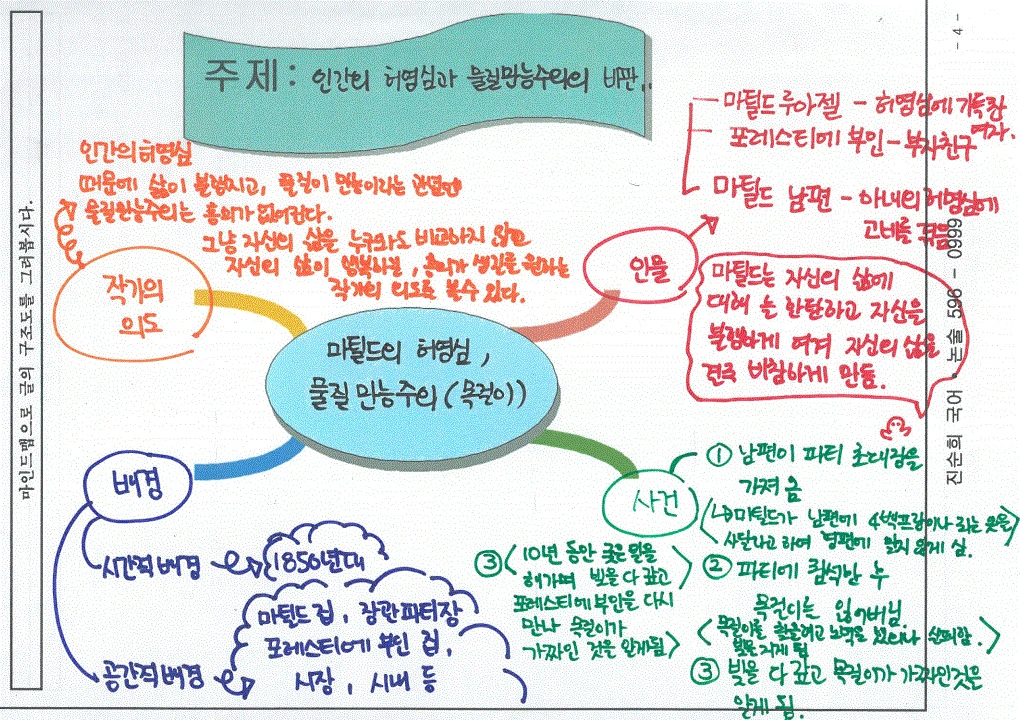 - 4 -
마인드맵으로 글의 구조도를 그려봅시다.
주제: 인간의 허영심과 물질만능주의의 비판..
인간의 허영심
때문에 삶이 불행지고, 물질이 만능이라는 관념인
물질만능주의는 흥미가 없어진다.
그냥 자신의 삶을 누구와도 비교하지 않고
자신의 삶이 행복하면, 흥미가 생긴를 원하는
작가의 의도를 볼수 있다.
작가의
의도
마틸드루아젤 - 허영심에 가득찬
여자.
포레스티에 부인 - 부자친구
마틸드 남편 - 아내의 허영심에
고비를 겪음
인물
마틸드는 자신의 삶에
대해 늘 한탄하고 자신을
불행하게 여겨 자신의 삶을
더욱 비참하게 만듦.
마틸드의 허영심,
물질만능주의 (목걸이)
배경
시간적 배경
1850년대
공간적 배경
마틸드 집, 장관파티장
포레스티에 부인 집,
시장, 시내 등
사건
① 남편이 파티 초대장을
가져옴
마틸드가 남편에 4백프랑이나 되는 옷을
사달라고 하여 형편에 맞지 않게 삼.
② 파티에 참석한 후
목걸이를 잃어버림
목걸이를 찾을려고 노력을 했으나 실패함.
빚을 지게 됨
③ 빚을 다 갚고 목걸이가 가짜인것을
알게 됨.
③ 10년 동안 궂은 일을
해가며 빚을 다 갚고
포레스티에부인을 다시
만나 목걸이가
가짜인 것을 알게됨
진순희 국어 • 논술 596 - 0999